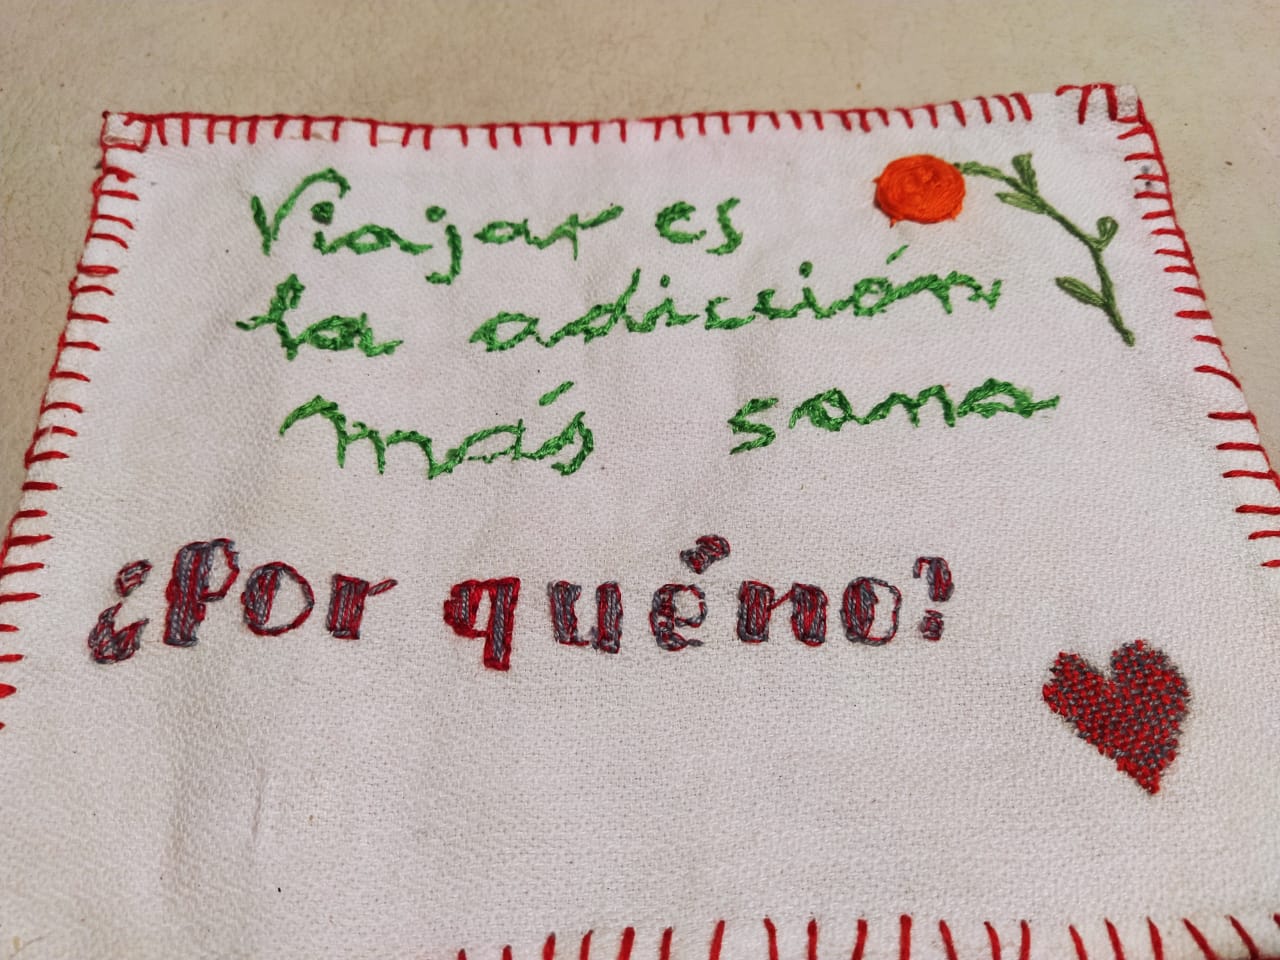 Viajar es
la adicción
más sana
¿Por qué no?